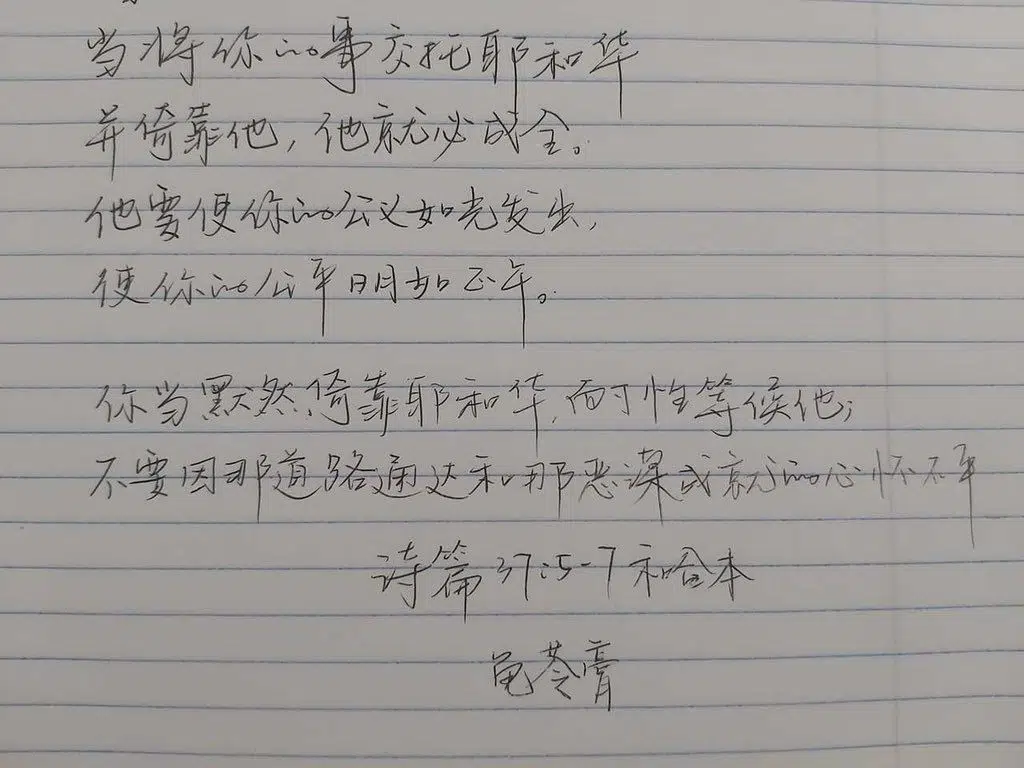 当将你的事交托耶和华
并倚靠他，他就必成全。
他要使你的公义如光发出，
使你的公平明如正午。
你当默然倚靠耶和华，耐性等候他；
不要因那道路通达和那恶谋成就的心怀不平
诗篇37:5-7和合本
龟苓膏